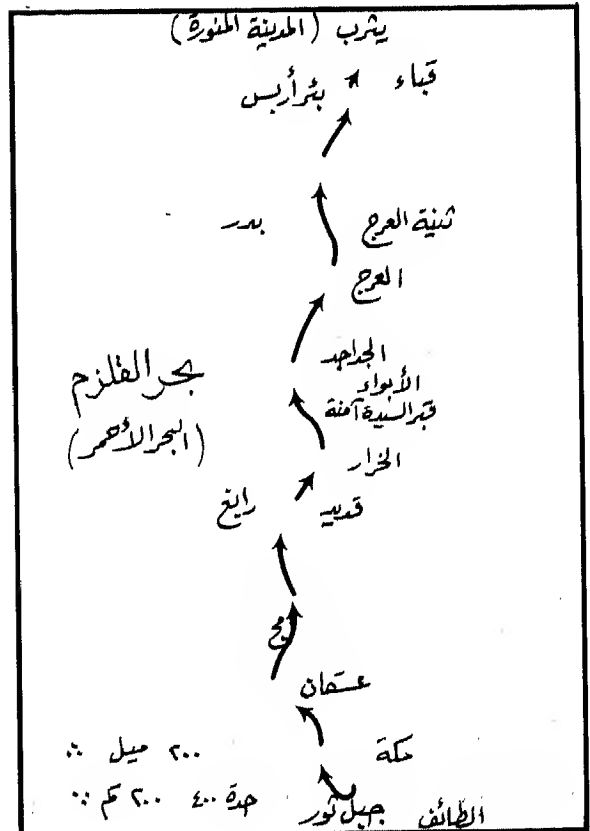 يثرب (المدينة المنورة)
قباء
بئر أريس
ثنية العرج
بدر
العرج
الجداجد
الأبواء
قبر السيدة آمنة
بحر القلزم
(البحر الأحمر)
الخرار
قديد
رابغ
أمج
عسفان
مكة
٢٠٠ ميل
الطائف
جبل ثور
جدة ٤٠٠
٢٠٠ كم